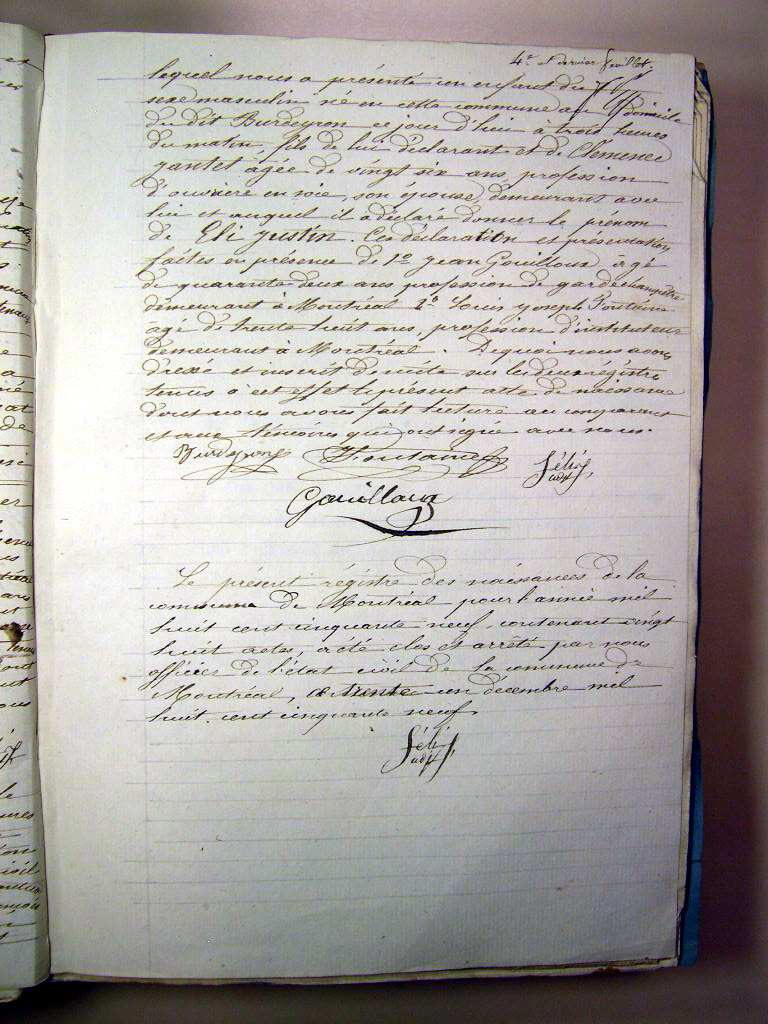 4e et dernier feuillet
lequel nous a présenté un enfant du
sexe masculin né en cette commune au domicile
du dit Burdeyron ce jour d'hui à trois heures
du matin, fils de lui déclarant et de Clémence
yantet agée de vingt six ans, profession
d'ouvrière en soie, son épouse, demeurant avec
lui et auquel il a déclaré donner le prénom
de Eli justin. Ces déclaration et présentation
faites en présence de 1o jean Gouilloux agé
de quarante deux ans profession de garde champêtre
demeurant à Montréal 2o Louis yoseph Fontaine
agé de trente huit ans, profession d'instituteur
demeurant à Montréal. De quoi nous avons
dressé et inscrit de suite sur les deux régistre
tenus à cet effet le présent acte de naissance
dont nous avons fait lecture au comparant
et aux témoins qui ont signé avec nous.
Burdeyron Fontaine Félix
adjt
Gouilloux
Le présent régistre des naissances de la
commune de Montréal pour l'année mil
huit cent cinquante neuf, contenant vingt
huit actes, a été clos et arrêté par nous
officier de l'état civil de la commune de
Montréal, le trente un décembre mil
huit cent cinquante neuf
Félix
adjt